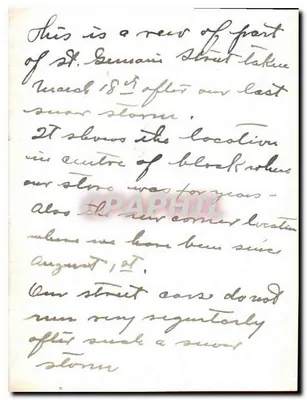 This is a view of part
of St. Germain Street taken
March 18th after our last
snow storm.
It shows the location
in centre of block where
our store was for years -
Also the new corner location
where we have been since
August 1st.
Our street cars do not
run very regularly
after such a snow
storm